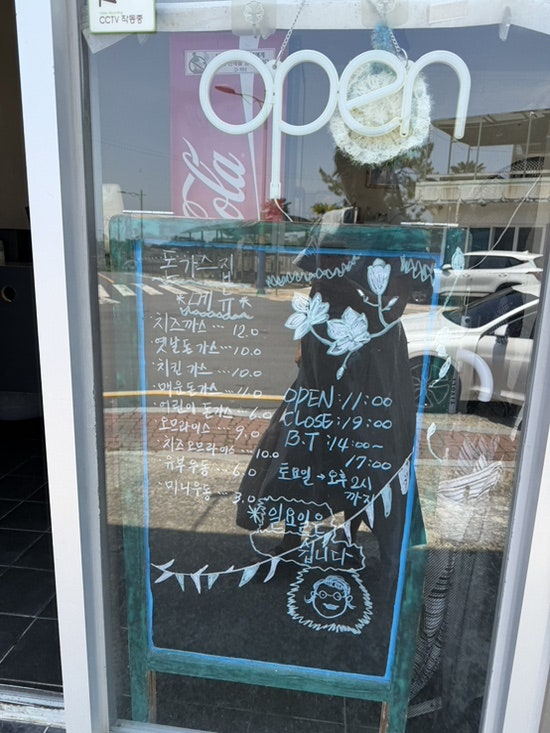 CCTV 작동중
open
Cola
돈가스집
*메뉴*
치즈까스 ... 12.0
옛날돈가스 ... 10.0
치킨까스 ... 10.0
매운돈가스 ... 11.0
어린이돈가스 ... 6.0
오므라이스 ... 9.0
치즈오므라이스 ... 10.0
유부우동 ... 6.0
미니우동 ... 3.0
OPEN : 11:00
CLOSE : 19:00
B.T : 14:00~
17:00
토요일 → 오후 2시
까지
*일요일은
쉽니다